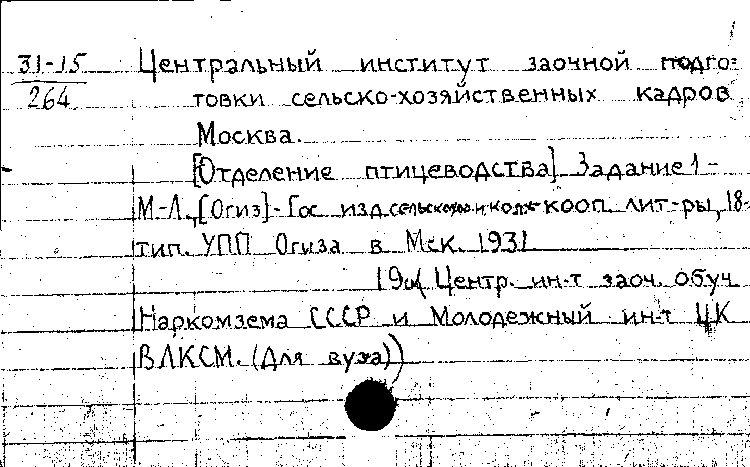 31-15 Центральный институт заочной подго-
264 товки сельско-хозяйственных кадров
Москва.
[Отделение птицеводства] Задание 1 -
М-Л., [Огиз]-Гос. изд. сельскохоз. и колх-кооп. лит-ры, 18-
тип. УПП Огиза в Мск. 1931
(Центр. ин-т заоч. обуч.
Наркомзема СССР и Молодежный ин-т ЦК
ВЛКСМ. (Для вуза))